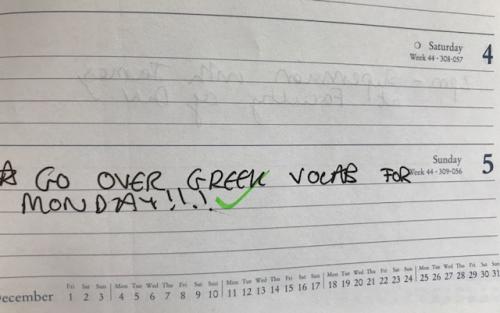 Saturday 4
Week 44 · 308-057
Sunday 5
Week 44 · 309-056
☆ GO OVER GREEK VOCAB FOR
MONDAY!!!! ✓
December
Fri Sat Sun Mon Tue Wed Thu Fri Sat Sun Mon Tue Wed Thu Fri Sat Sun Mon Tue Wed Thu Fri Sat Sun Mon Tue Wed Thu Fri Sat Sun
1 2 3 4 5 6 7 8 9 10 11 12 13 14 15 16 17 18 19 20 21 22 23 24 25 26 27 28 29 30 31